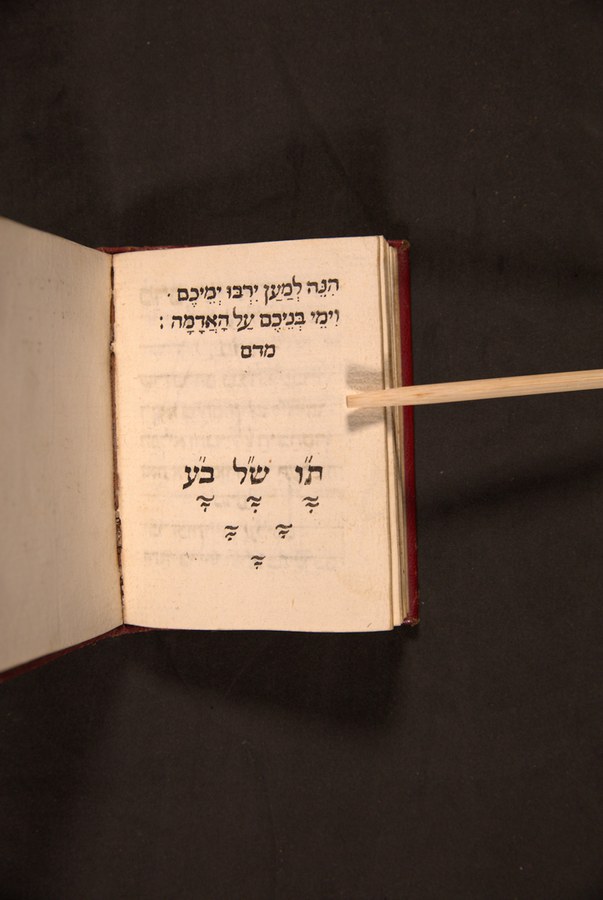 הִנֵּה לְמַעַן יִרְבּוּ יְמֵיכֶם ·
וִימֵי בְנֵיכֶם עַל הָאֲדָמָה :
מדם
ת״ו ש״ל ב״ע